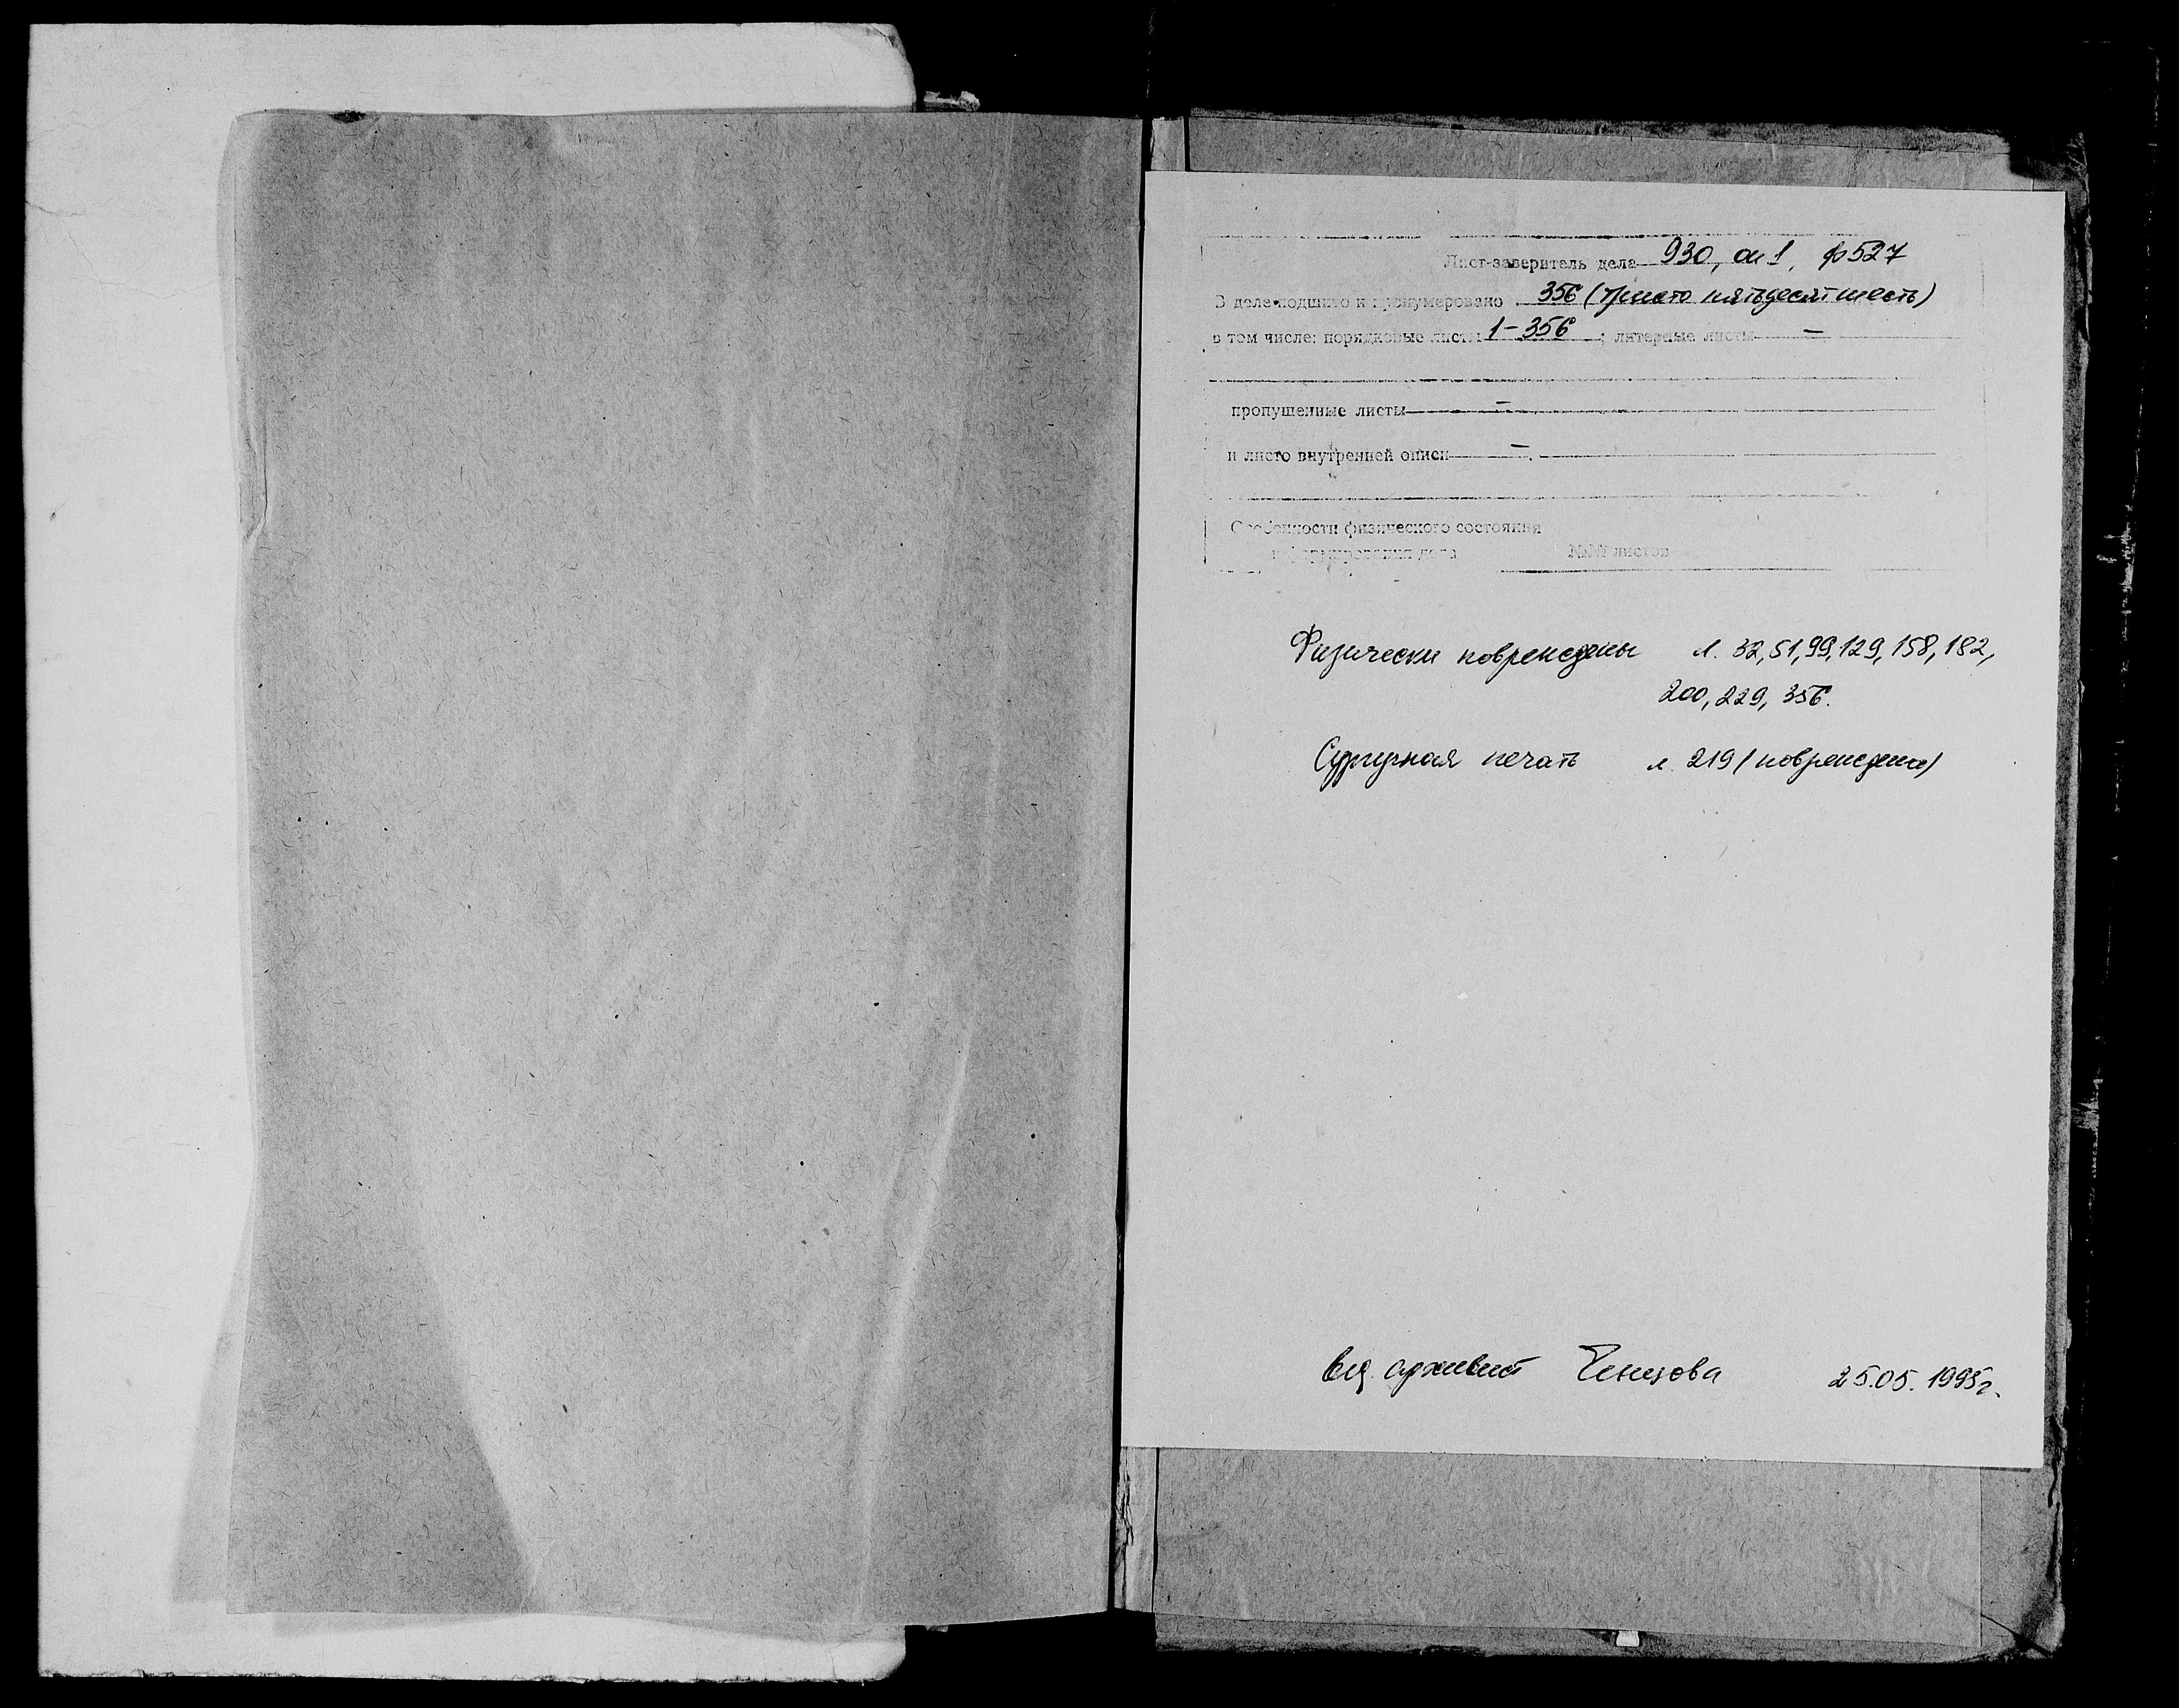 Лист-заверитель дела 930, оп 1, ф 527
В деле подшито и пронумеровано 356 (триста пятьдесят шесть)
в том числе: порядковые листы 1-356; литерные листы –
пропущенные листы –
и листо внутренней описи –
Особенности физического состояния
и формирования дела №№ листов
Физически повреждены л. 32, 51, 99, 129, 158, 182,
200, 229, 356.
Сургучная печать л. 219 (повреждена)
вед. архивист 25.05.1995г.